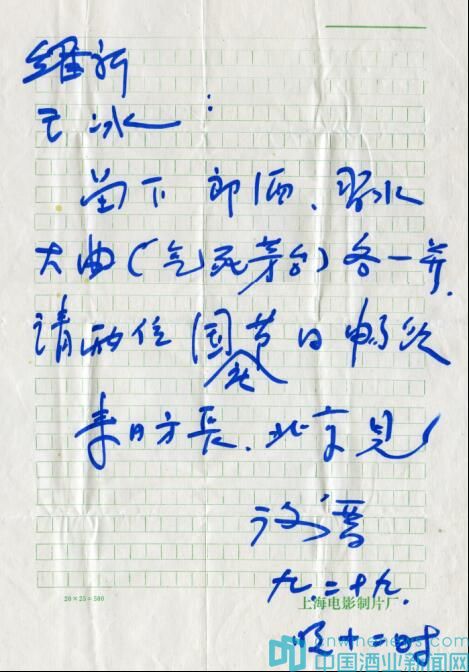 冰：
留下郎酒、習水
大曲（气死茅台）各一瓶.
请两位国庆节日畅饮
来日方長.北京見！
谢晋
九.二十九.
晚十二时
20×25=500
上海电影制片厂
cnwinenews.com
中国酒业新闻网